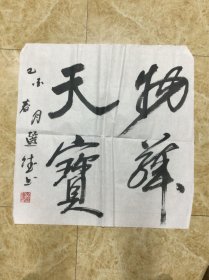 物華
天寶
乙酉
春月